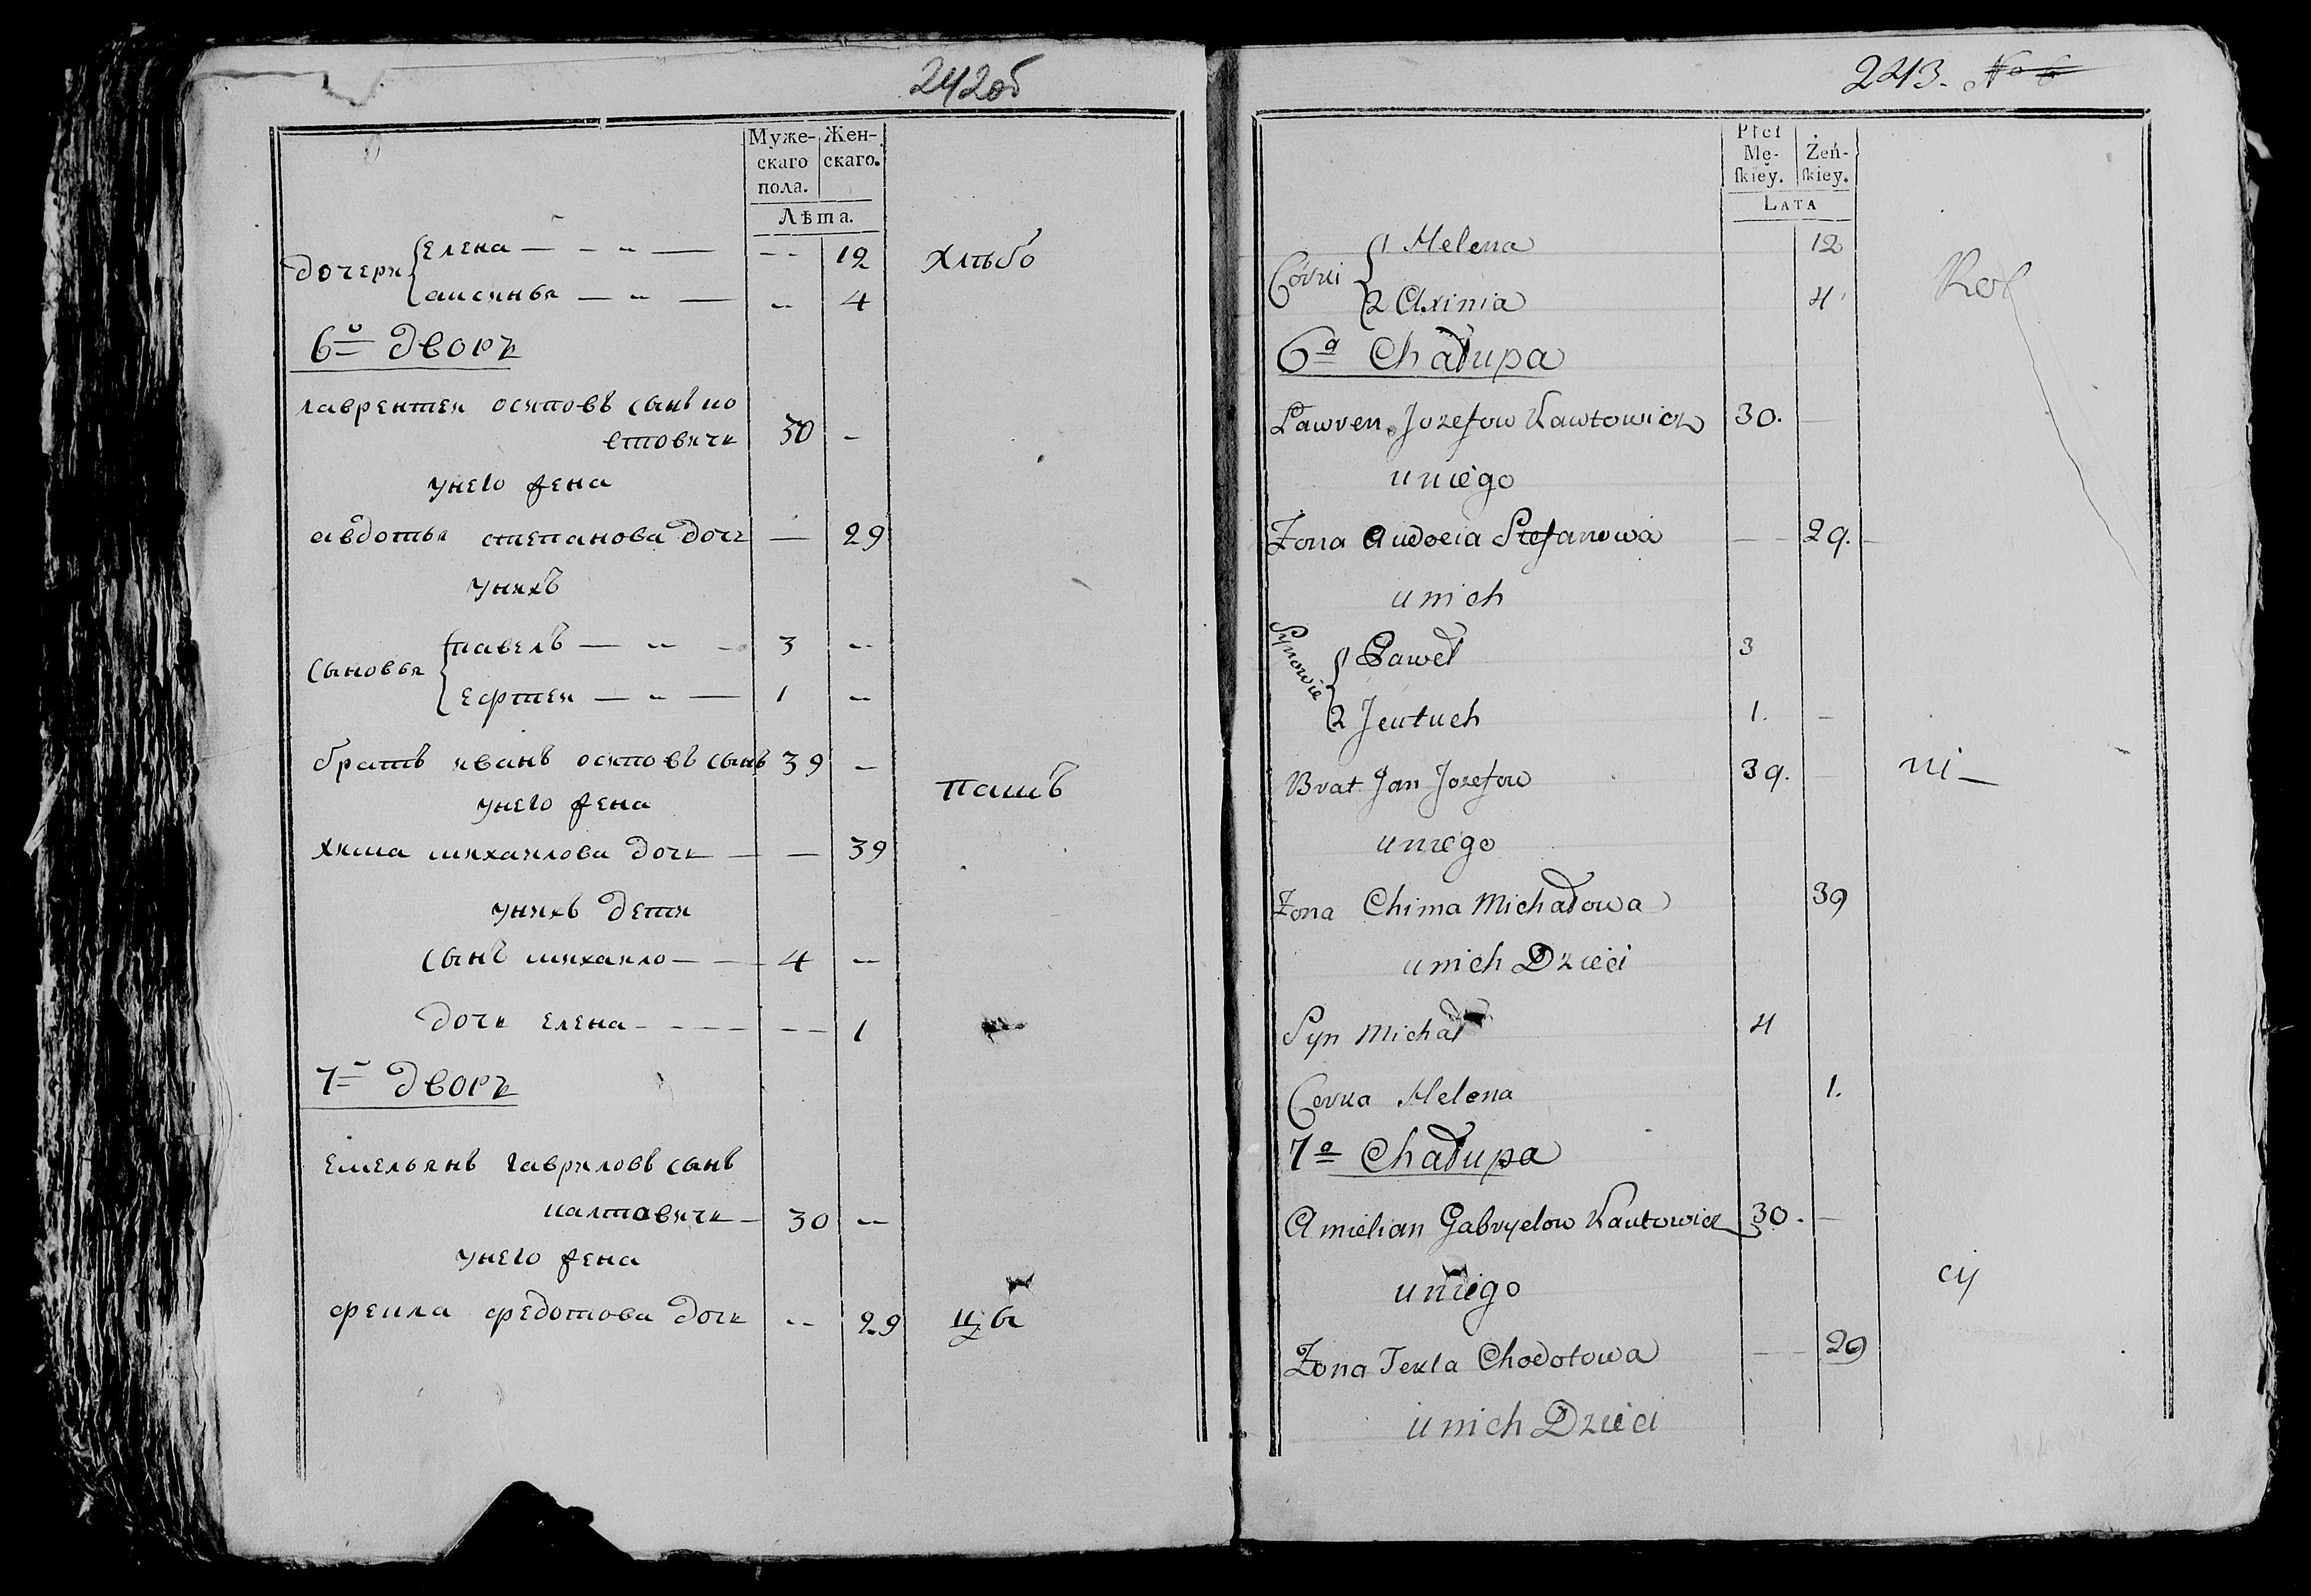 242об
Муже-
скаго
пола.
Жен-
скаго.
Лѣта.
дочери
Елена — - „ — -- 12 Хлѣбо
аксинья — „ — -- 4
6й дворъ
лаврентеи осиповъ сынъ ко
втовичь 30 -
унего жена
авдотья степанова дочь — 29
унихъ
сыновья
павелъ — „ - 3 --
Ефтеи — „ — 1 --
братъ иванъ осиповъ сынъ 39 —
пашъ
унего жена
хима михаилова дочь — — 39
унихъ дети
сынъ михаило — — 4 --
дочь Елена - - - - -- 1
7й дворъ
Емельянъ гавриловъ сынъ
калтовичь — 30 --
унего жена
фекла федотова дочь -- 29 цы
243. No 6
Płci
Mę-
ſkiey.
Żeń-
ſkiey.
LATA
Córki
1 Helena 12
2 Axinia 4
Rol
6a Chałupa
Ławren. Jozefow Kawtowicz 30. —
uniego
Zona Audocia Stefanowa — 29. —
unich
Synowie
1 Paweł 3
2 Jeutuch 1. —
Brat Jan Jozefow 39. — ni —
uniego
Zona Chima Michałowa 39
unich Dzieci
Syn Michał 4
Corka Helena 1.
7a Chałupa
Amielian Gabryelow Kautowicz 30. —
uniego
cy
Zona Tekla Chodotowa — 29
unich Dzieci